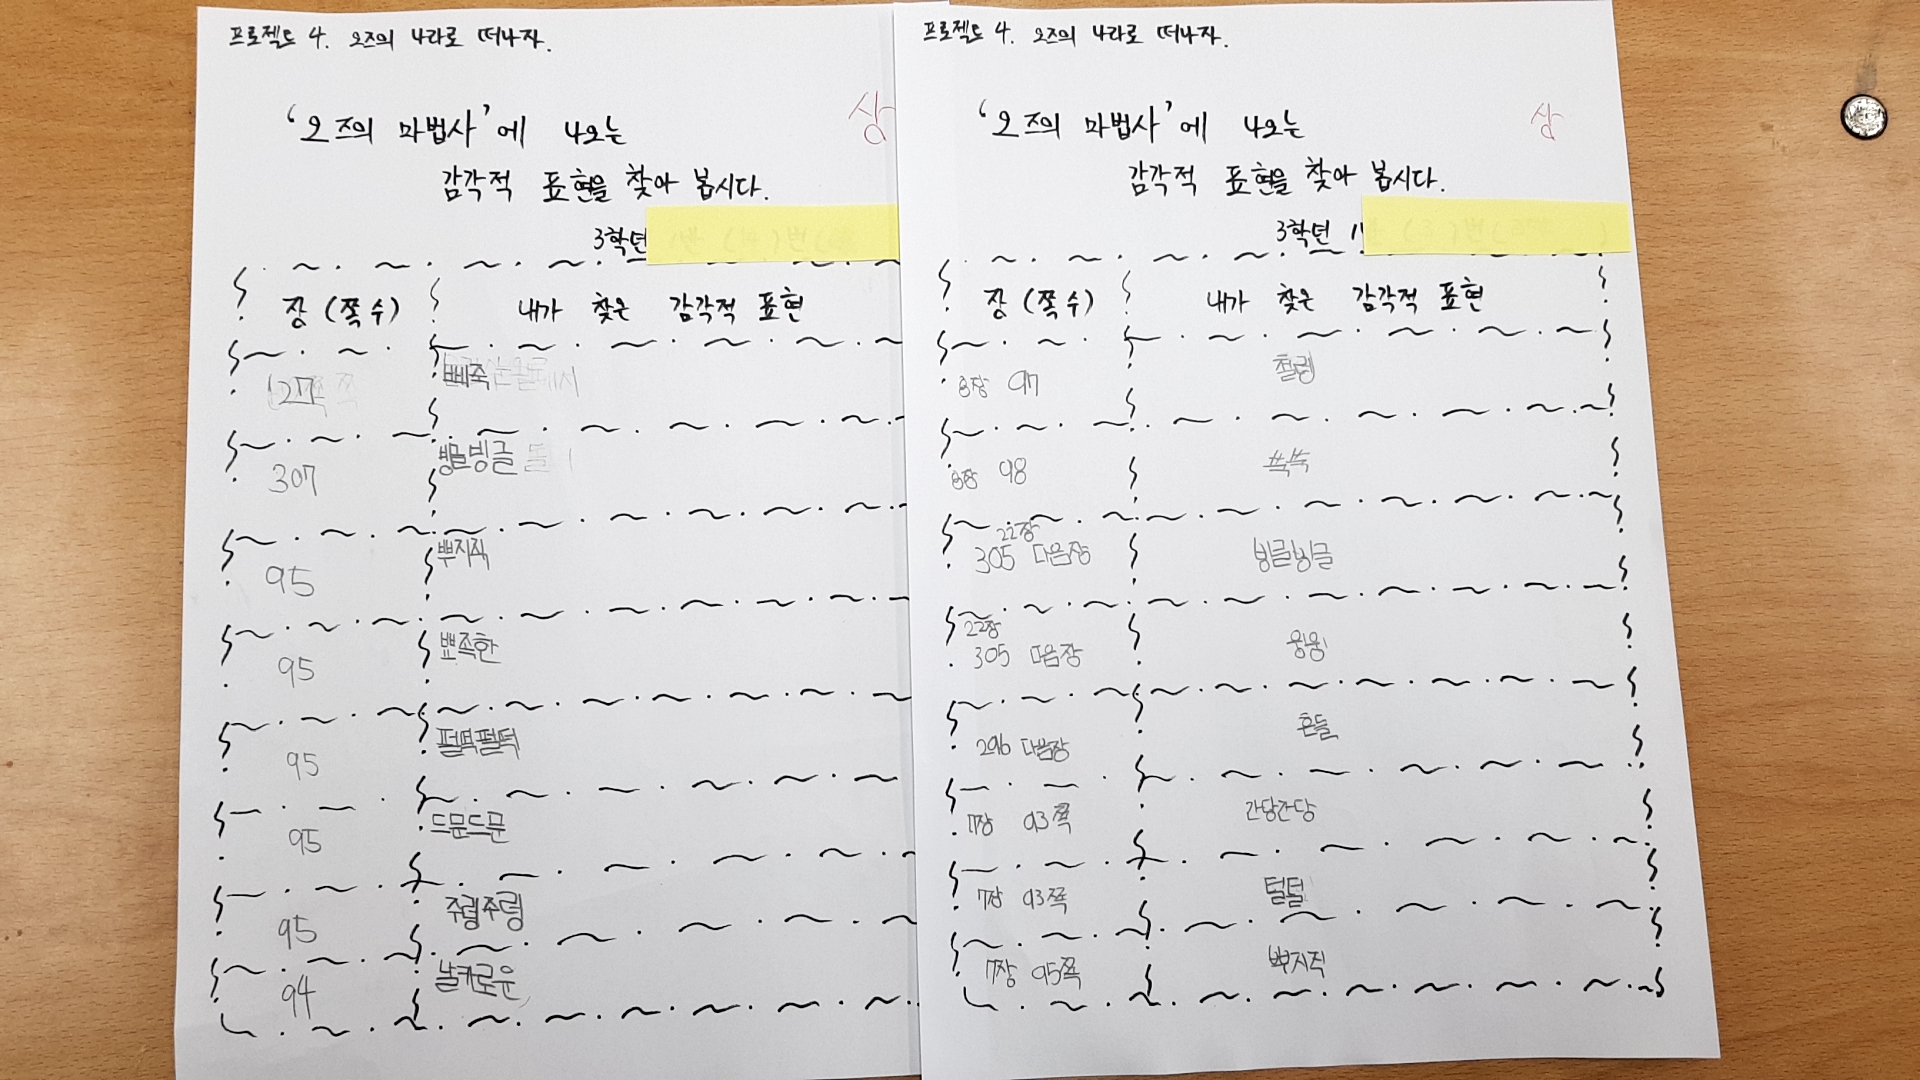 프로젝트 4. 오즈의 나라로 떠나자.
'오즈의 마법사'에 나오는
상
감각적 표현을 찾아 봅시다.
3학년
장(쪽수) 내가 찾은 감각적 표현
27 삐죽
307 빙글빙글
95 뿌지직
95 뾰족한
95 펄떡펄떡
95 드문드문
95 주렁주렁
94 날카로운
프로젝트 4. 오즈의 나라로 떠나자.
'오즈의 마법사'에 나오는
상
감각적 표현을 찾아 봅시다.
3학년
장(쪽수) 내가 찾은 감각적 표현
8장 97 철렁
8장 98 쑥쑥
22장
305 다음장 빙글빙글
22장
305 다음장 윙윙
296 다음장 흔들
7장 93쪽 간당간당
7장 93쪽 털털
7장 95쪽 뿌지직